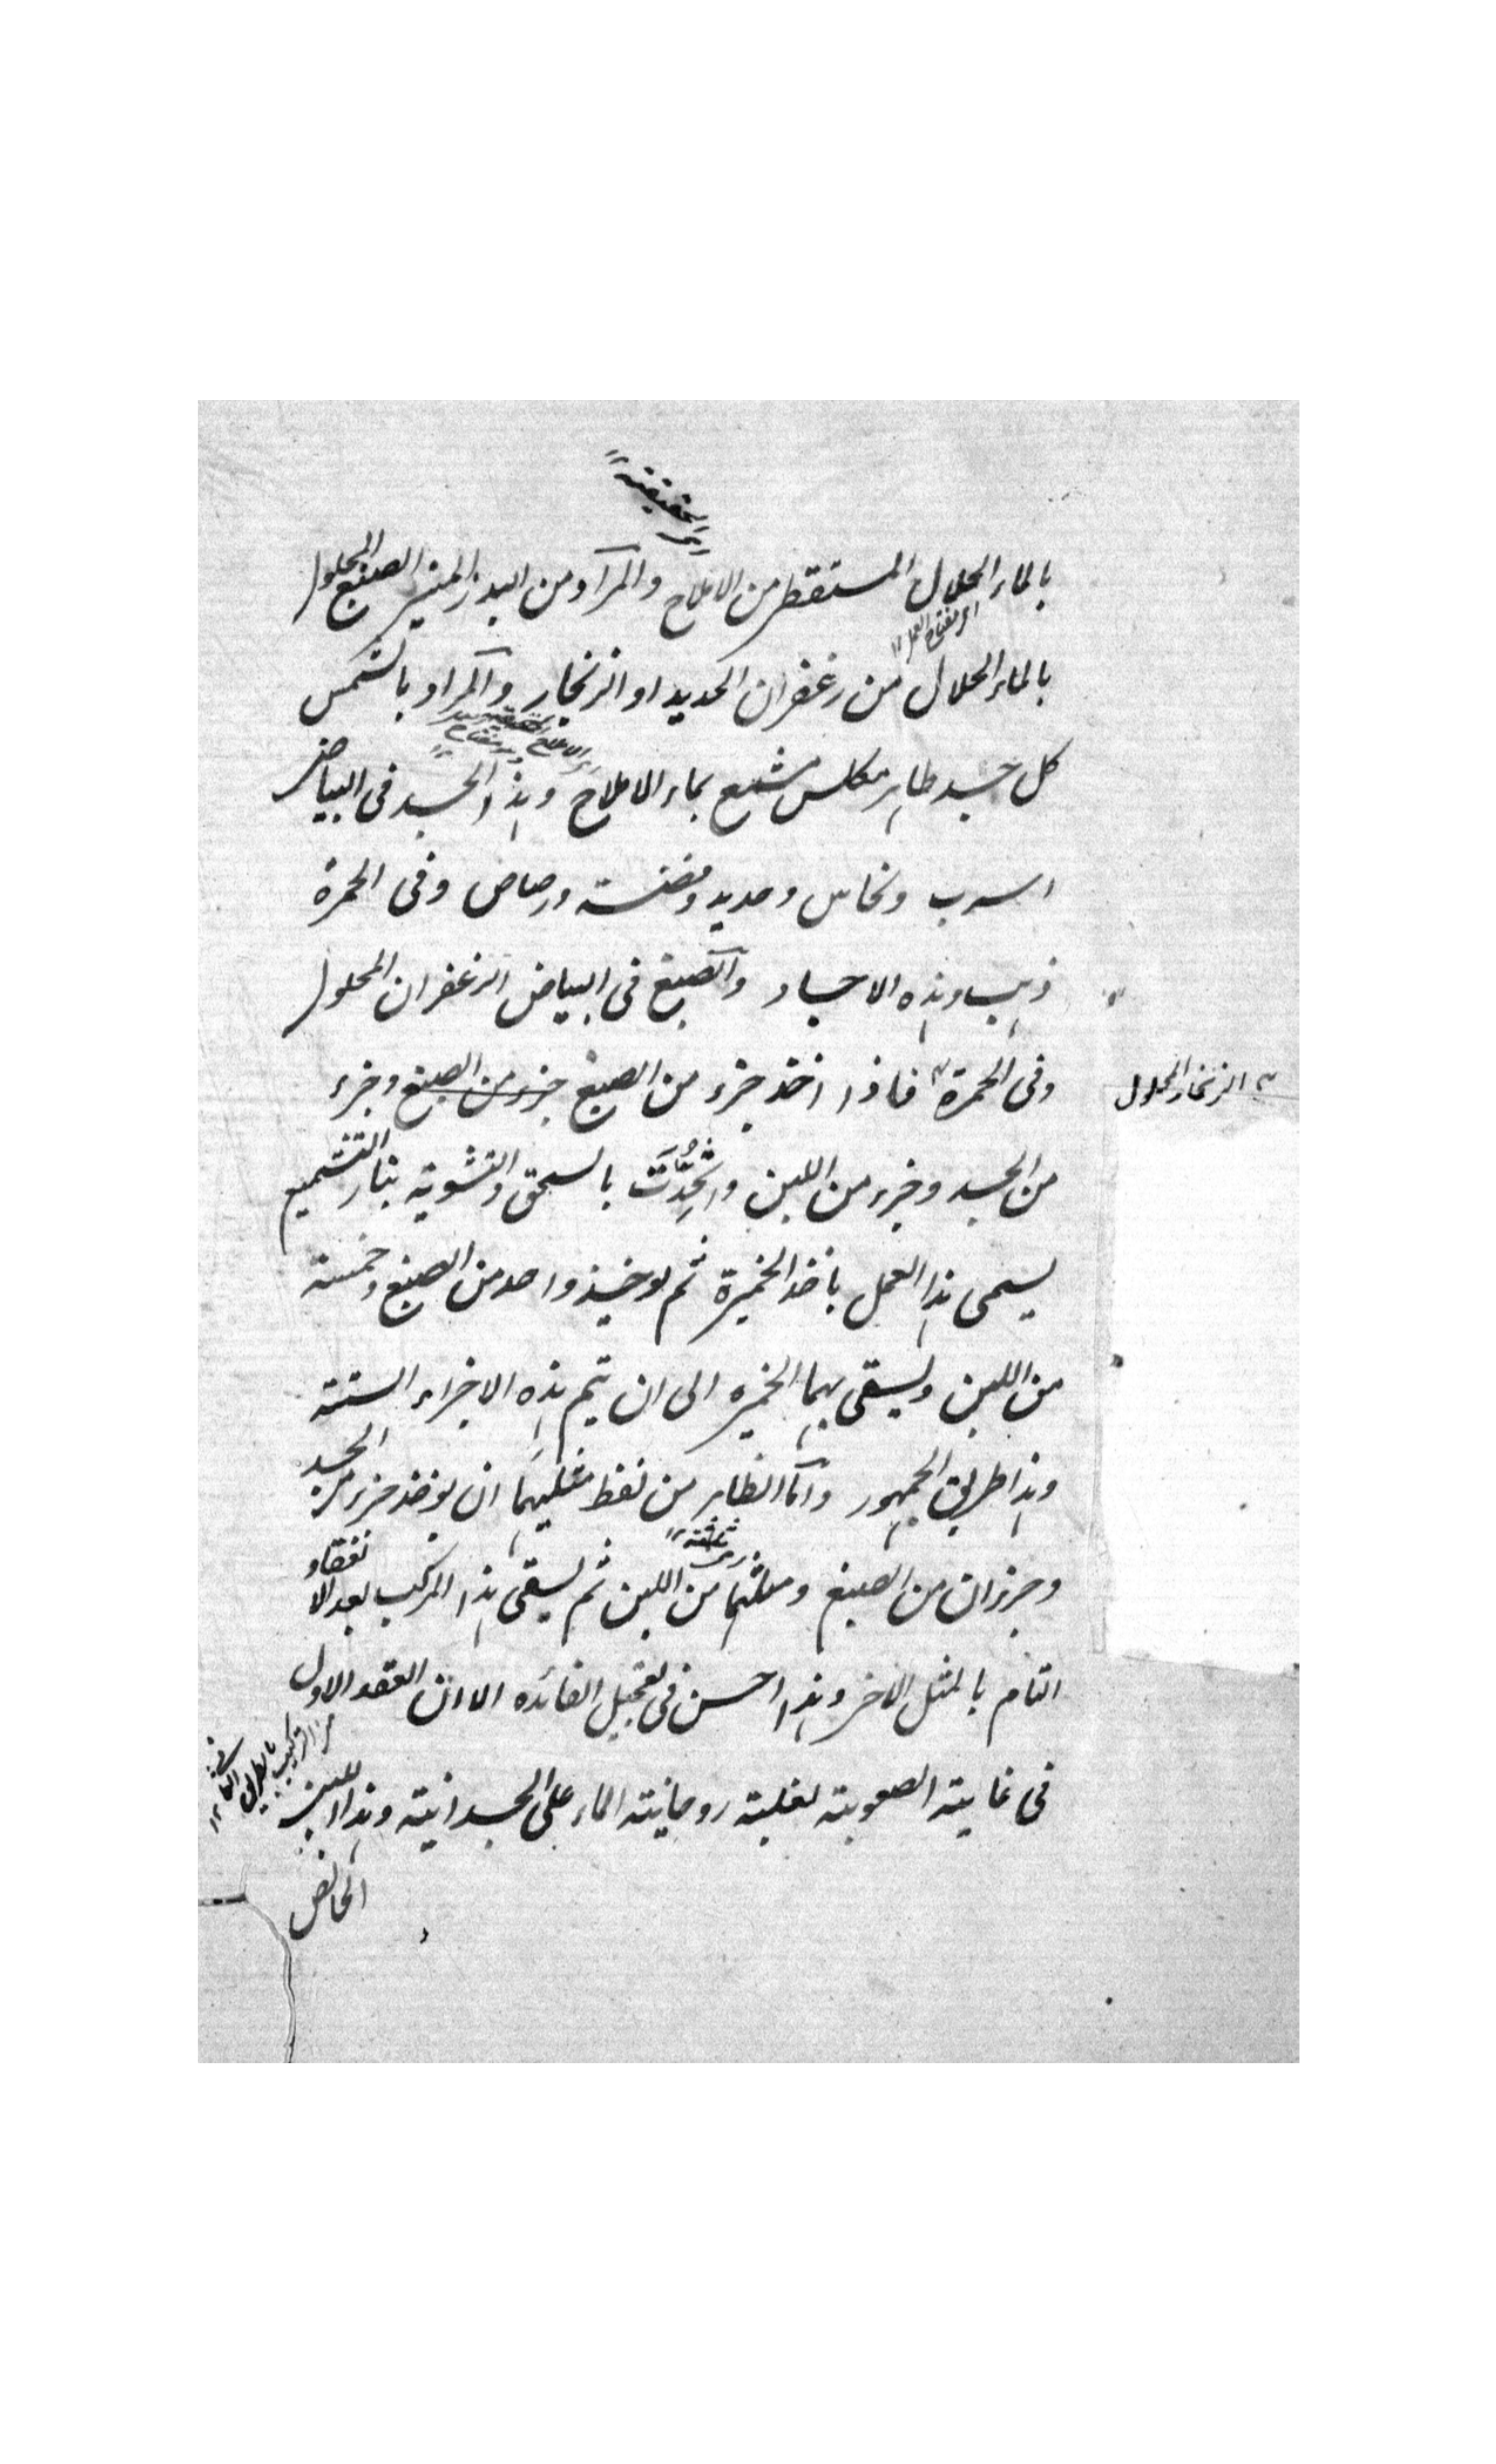 اى الحقيقية
بالماء الحلال المستقطر من الاملاح والمراد من البدر المنير الصبغ المحلول
اى مفتاح العمل ١٢
بالماء الحلال من زعفران الحديد او الزنجار والمراد بالشمس
كل جسد طاهر مكلس مشمع بماء الاملاح وهذا الجسد فى البياض
اسرب ونحاس وحديد وفضة ورصاص وفى الحمرة
ذهب وهذه الاجساد والصبغ فى البياض الزعفران المحلول
وفى الحمرة فاذا اخذ جزء من الصبغ جزء من الصبغ وجزء
الزنجار المحلول
من الجسد وجزء من اللبن واتحدت بالسحق والتشوية بنار التشميع
يسمى هذا العمل باخذ الخميرة ثم يوخذ واحد من الصبغ وخمسة
من اللبن ويسقى بهما الخميره الى ان يتم هذه الاجزاء الستة
وهذا طريق الجمهور واما الظاهر من لفظ مثليهما ان يوخذ جزء من الجسد
وجزءان من الصبغ ومثلهما من اللبن ثم يسقى هذا المركب بعد الانعقاد
التام بالمثل الاخر وهذا احسن فى تعجيل الفائده الا ان العقد الاول
من التركيب بالطريق الثانى ١٢
فى غاية الصعوبة لغلبة روحانية الماء على الجسدانية وهذا
الخالص